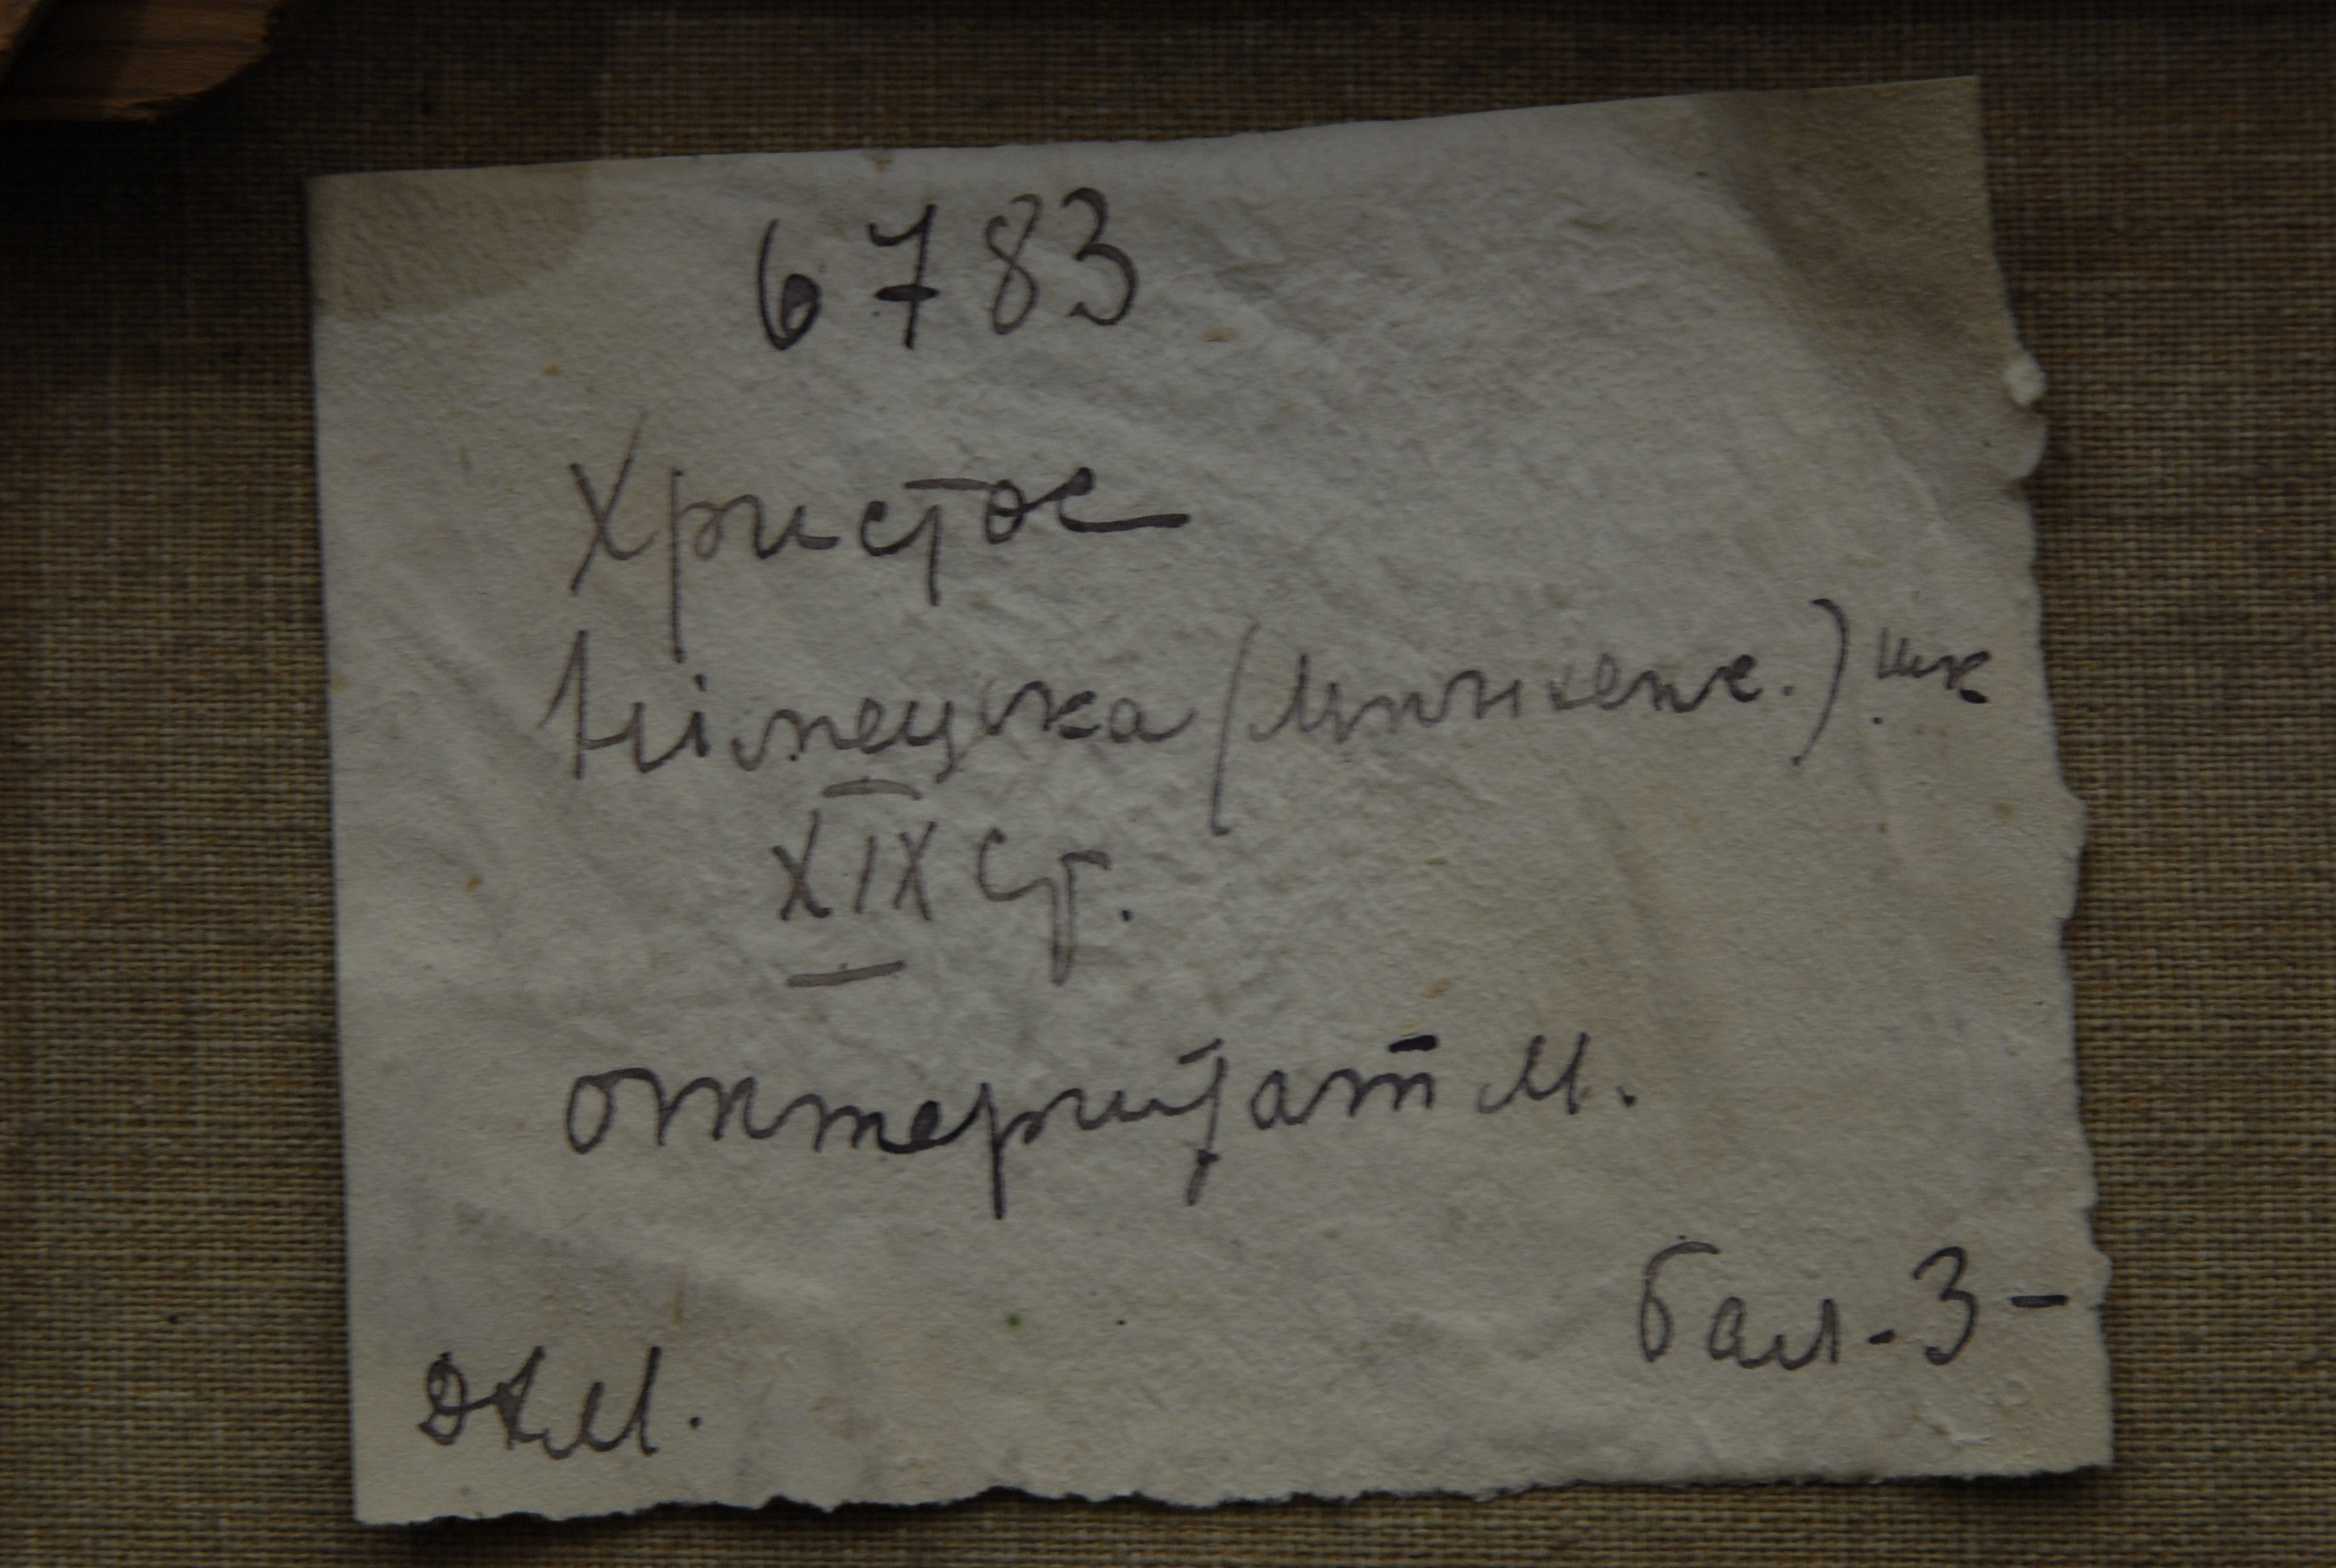 6783
Христос
Німецька (Мюнхенс.) шк
XIX ст.
М.
бал - 3 -
ДКМ.